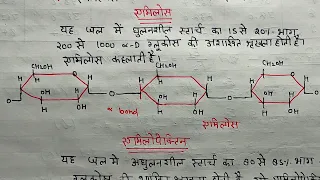 एमिलोस
यह जल में घुलनशील स्टार्च का 15 से 20% भाग
200 से 1000 α-D ग्लूकोस की अशाखित श्रृंखला होती है।
एमिलोस कहलाती है।
CH₂OH CH₂OH CH₂OH
H H H H H H
OH H OH H OH H
O O O O
H OH H OH H OH
α bond
एमिलोस
एमिलोपेक्टिन
यह जल में अघुलनशील स्टार्च का 80 से 85% भाग